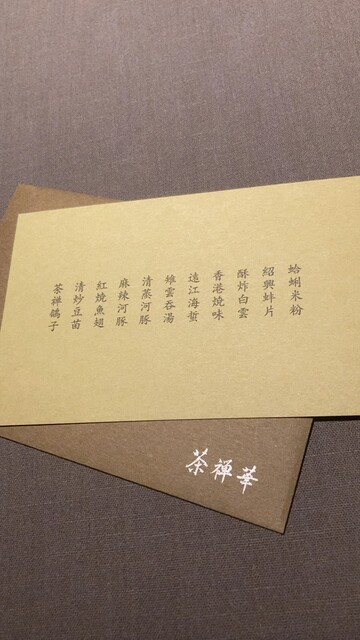 蛤蜊米粉
紹興蚌片
酥炸白雲
香港燒味
遠江海蜇
雉雲吞湯
清蒸河豚
麻辣河豚
紅燒魚翅
清炒豆苗
茶禅鴿子
茶禅華